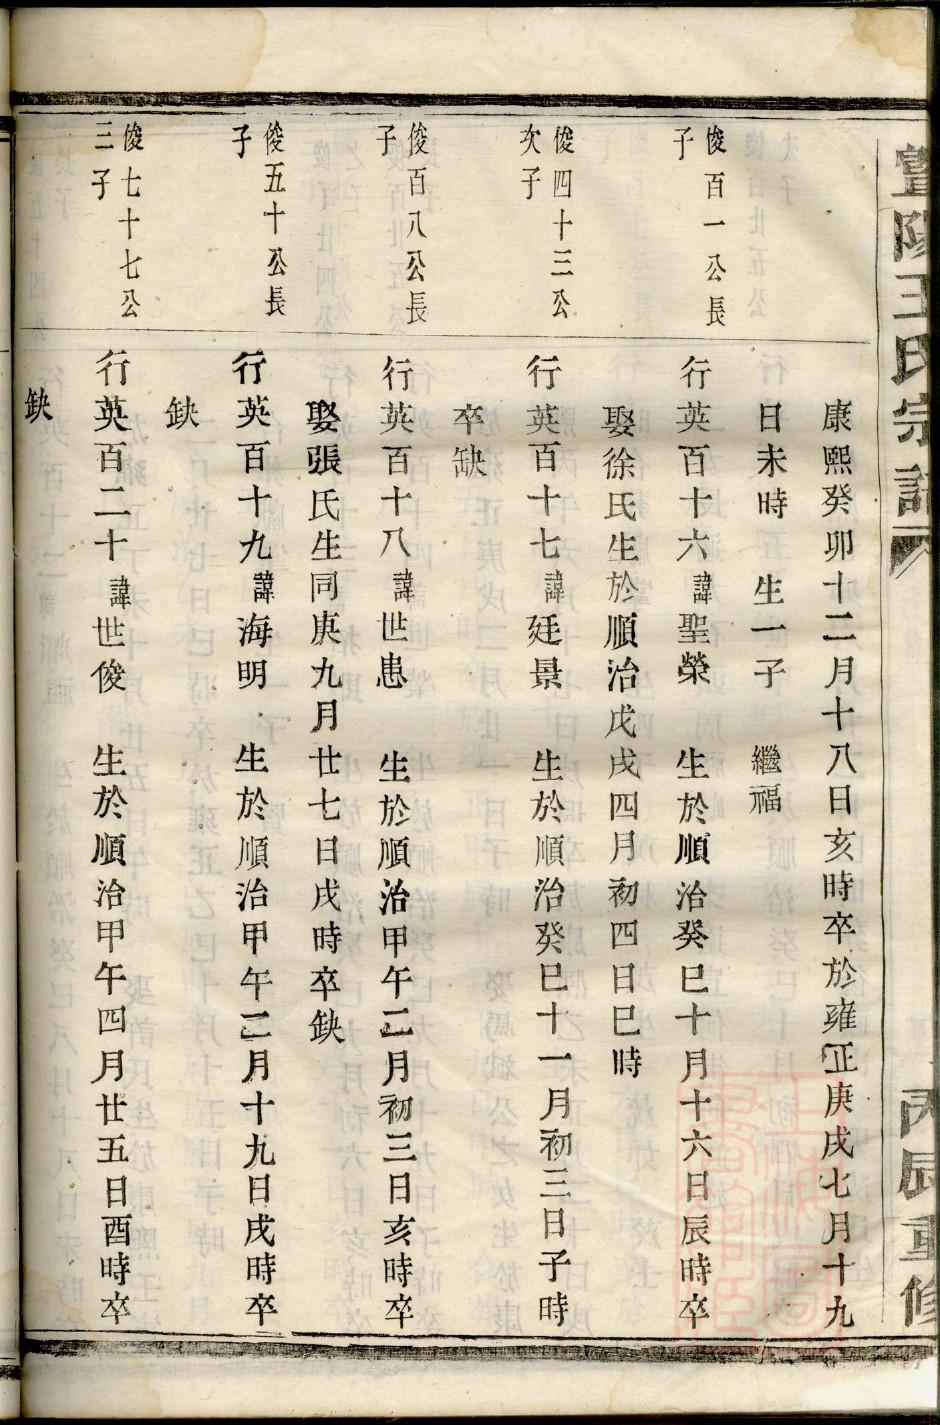 暨陽王氏宗譜
丙辰重修
康熙癸卯十二月十八日亥時卒於雍正庚戌七月十九
日未時 生一子 繼福
俊百一公長
子
行英百十六諱聖榮 生於順治癸巳十月十六日辰時卒
娶徐氏生於順治戊戌四月初四日巳時
俊四十三公
次子
行英百十七諱廷景 生於順治癸巳十一月初三日子時
卒缺
俊百八公長
子
行英百十八諱世患 生於順治甲午二月初三日亥時卒
娶張氏生同庚九月廿七日戌時卒缺
俊五十公長
子
行英百十九諱海明 生於順治甲午二月十九日戌時卒
缺
俊七十七公
三子
行英百二十諱世俊 生於順治甲午四月廿五日酉時卒
缺